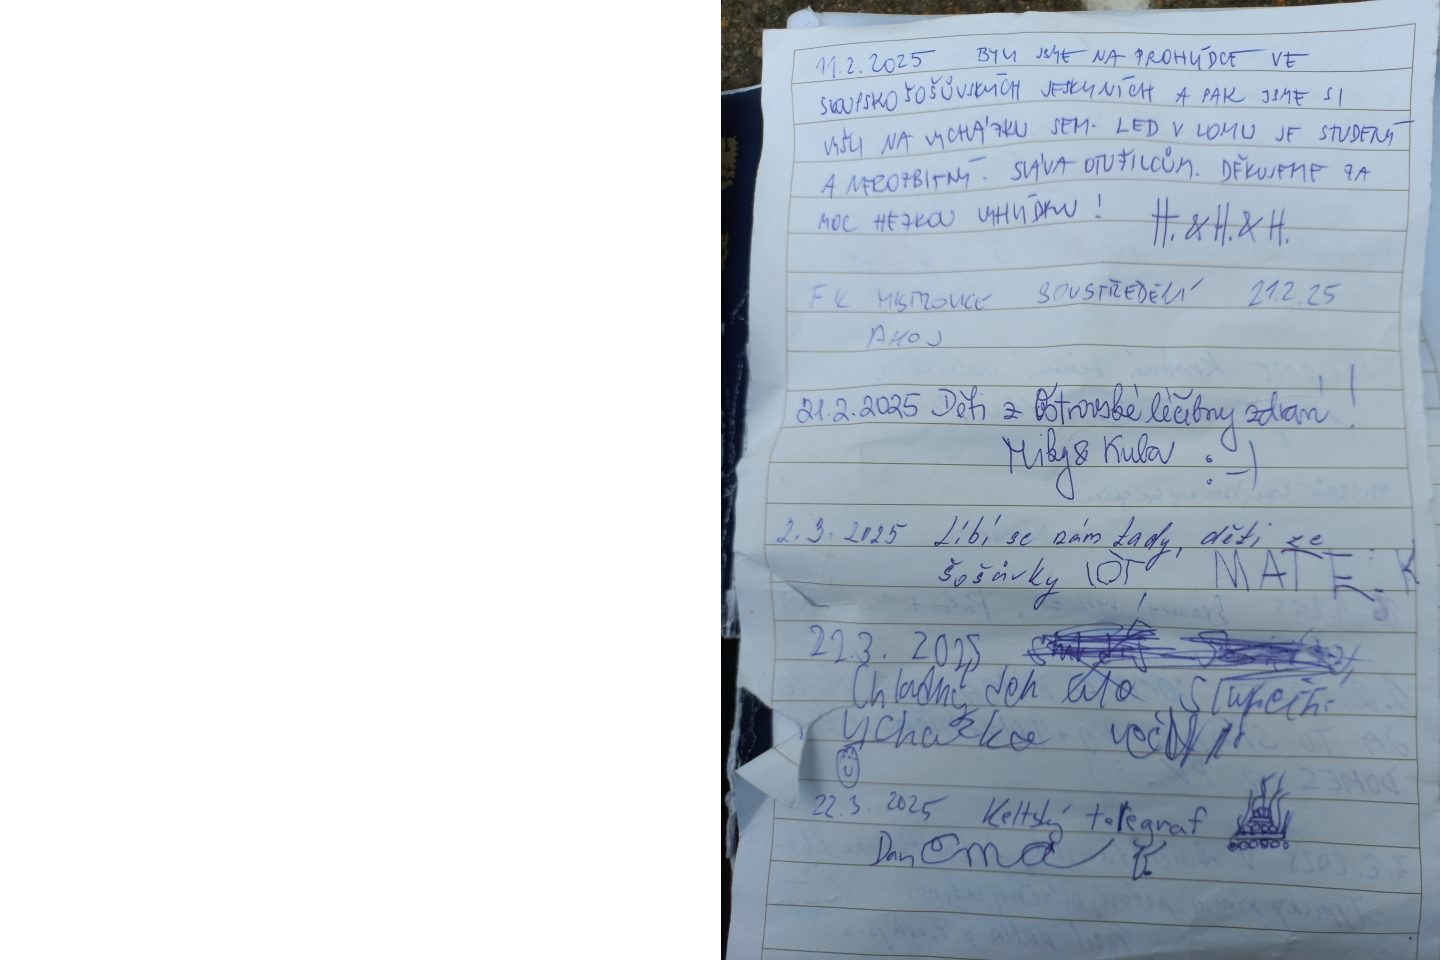 11.2.2025 BYLI JSME NA PROHLÍDCE VE
SLOUPSKO ŠOŠŮVSKÝCH JESKYNÍCH A PAK JSME SI
VYŠLI NA VYCHÁZKU SEM. LED V LOMU JE STUDENÝ
A NEROZBITNÝ. SLÁVA OTUŽILCŮM. DĚKUJEME ZA
MOC HEZKOU VYHLÍDKU! H. & H. & H.
FK MISTROVICE SOUSTŘEDĚNÍ 21.2.25
AHOJ
21.2.2025 Děti z Ostrovské léčebny zdraví!
Miky & Kuba :-)
2.3.2025 Líbí se nám tady, děti ze
Šošůvky
22.3. 2025
Chladný den
vycházka
22.3. 2025 Keltský telegraf
Dan Ema